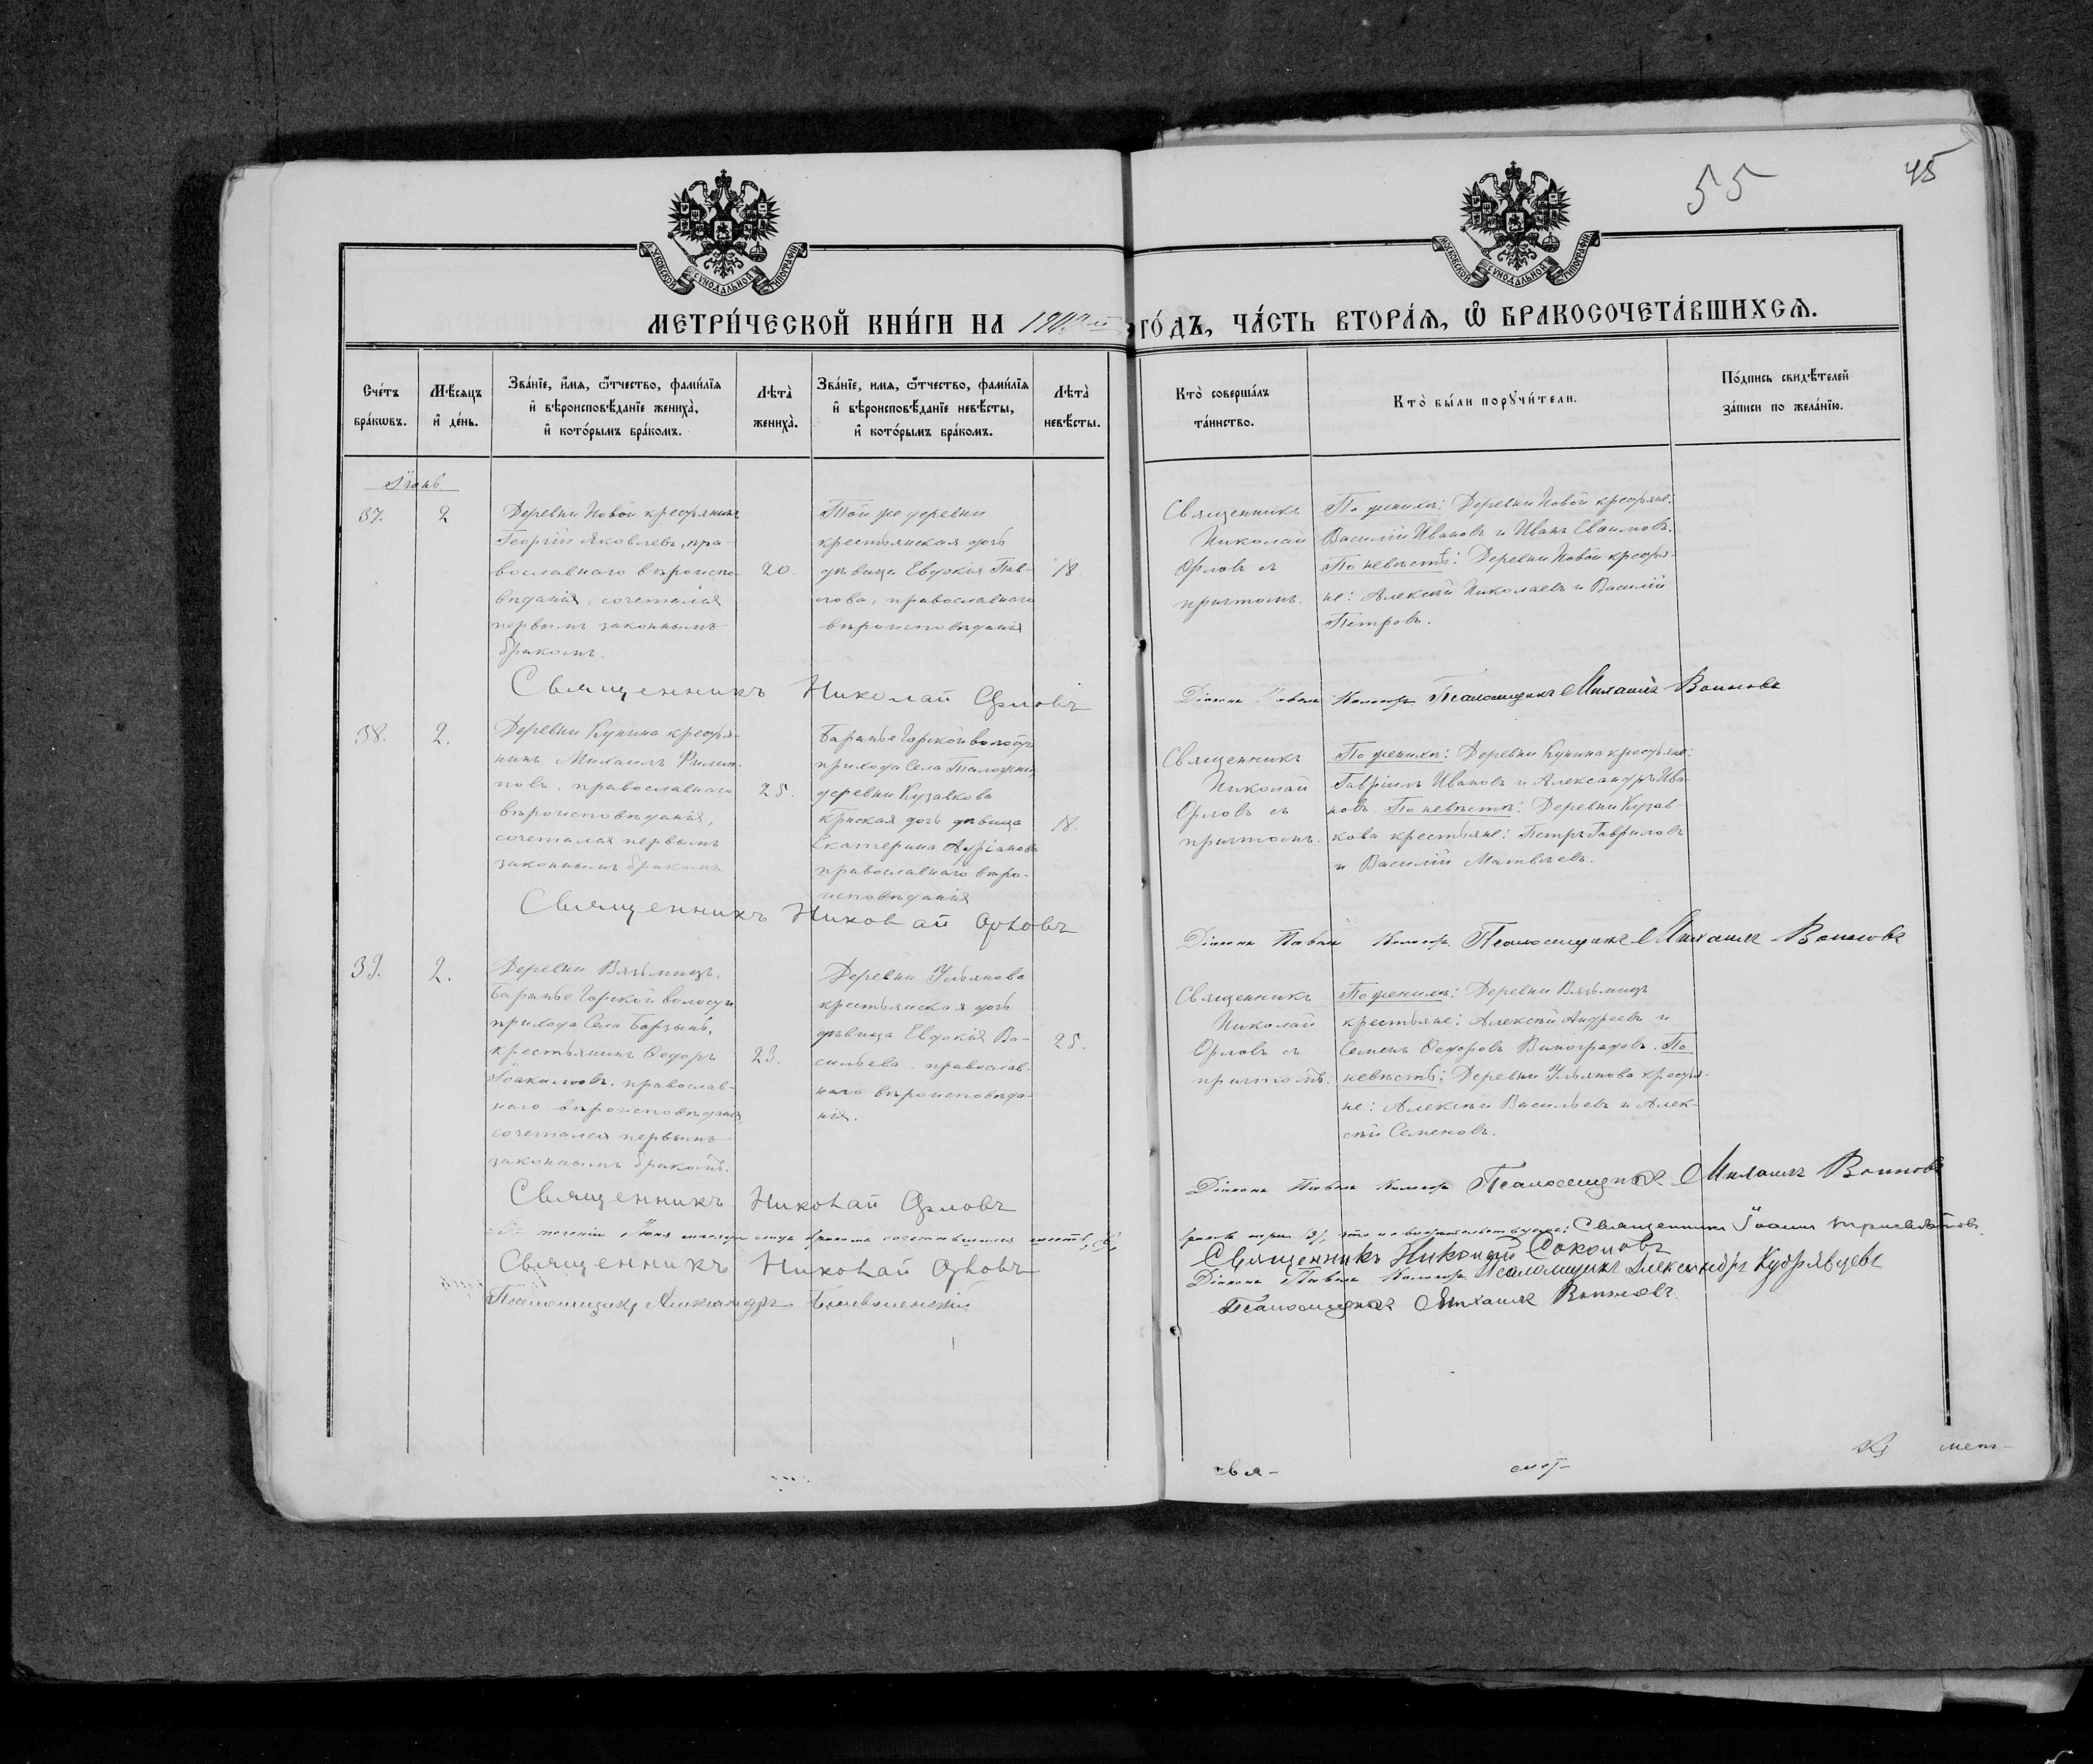 55
45
МОСКОВСКОЙ СѴНОДАЛЬНОЙ ТИПОГРАФІИ
МОСКОВСКОЙ СѴНОДАЛЬНОЙ ТИПОГРАФІИ
МЕТРИ́ЧЕСКОЙ КНИ́ГИ НА ГО́ДЪ, ЧА́СТЬ ВТОРА́Я, Ѡ҆ БРАКОСОЧЕТА́ВШИХСЯ.
Сче́тъ
бра́кѡвъ.
Мѣ́сяцъ
и҆ де́нь.
Зва́нїе, и҆́мя, ѻ҆́тчество, фами́лїя
и҆ вѣроисповѣ́данїе жениха̀,
и҆ кото́рымъ бра́комъ.
Лѣта̀
жениха̀.
Зва́нїе, имя, ѻ҆́тчество, фами́лїя
и҆ вѣроисповѣ́данїе невѣ́сты,
и҆ кото́рымъ бра́комъ.
Лѣта̀
невѣ́сты.
Кто̀ соверша́лъ
та́инство.
Кто̀ бы́ли порꙋчи́тели.
По́дпись свидѣ́телей
за́писи по жела́нїю.
Іюнь
37.
2
Деревни Новой крестьянинъ
Георгій Яковлевъ, пра-
вославнаго вѣроиспо-
вѣданія, сочетался
первымъ законнымъ
бракомъ.
20.
Той же деревни
крестьянская дочь
дѣвица Евдокія Пав-
лова, православнаго
вѣроисповѣданія
18.
Священникъ
Николай
Орловъ съ
причтомъ.
По женихѣ: Деревни Новой крестьяне:
Василій Ивановъ и Иванъ Евѳимовъ.
По невѣстѣ: Деревни Новой крестья-
не: Алексѣй Николаевъ и Василій
Петровъ.
Священникъ Николай Орловъ
Діаконъ Павелъ Псаломщикъ Михаилъ Воиновъ
38.
2.
Деревни Кунина крестья-
нинъ Михаилъ Филип-
повъ, православнаго
вѣроисповѣданія,
сочетался первымъ
законнымъ бракомъ
25.
Баранье Горской волости
прихода Села
деревни Кузавкова
кр-нская дочь дѣвица
Екатерина Адріанова
православнаго вѣро-
исповѣданія
18.
Священникъ
Николай
Орловъ съ
причтомъ.
По женихѣ: Деревни Кунина крестьяне:
Гавріилъ Ивановъ и Александръ Ива-
новъ. По невѣстѣ: Деревни Кузав-
кова крестьяне: Петръ Гавриловъ
и Василій Матвѣевъ.
Священникъ Николай Орловъ
Діаконъ Павелъ Псаломщикъ Михаилъ Воиновъ
39.
2.
Деревни Вязьмицъ,
Баранье Горской волости
прихода Села Борзынь,
крестьянинъ Ѳедоръ
Іоакимовъ, православ-
наго вѣроисповѣданія
сочетался первымъ
законнымъ бракомъ.
23.
Деревни Ульянова
крестьянская дочь
дѣвица Евдокія Ва-
сильева, православ-
наго вѣроисповѣда-
нія.
25.
Священникъ
Николай
Орловъ съ
причтомъ.
По женихѣ: Деревни Вязьмицъ
крестьяне: Алексѣй Андреевъ и
Семенъ Ѳедоровъ Виноградовъ. По
невѣстѣ: Деревни Ульянова крестья-
не: Алексѣй Васильевъ и Алек-
сѣй Семеновъ.
Священникъ Николай Орловъ
Діаконъ Павелъ Псаломщикъ Михаилъ Воиновъ
теченіи Іюня мѣсяца бракомъ сочетавшихся три (3), Священникъ Іоаннъ
Священникъ Николай Орловъ
Священникъ Николай Соколовъ
Діаконъ Павелъ Псаломщикъ Александръ Кудрявцевъ
Псаломщикъ Александръ
Псаломщикъ Михаилъ Воиновъ
свя-